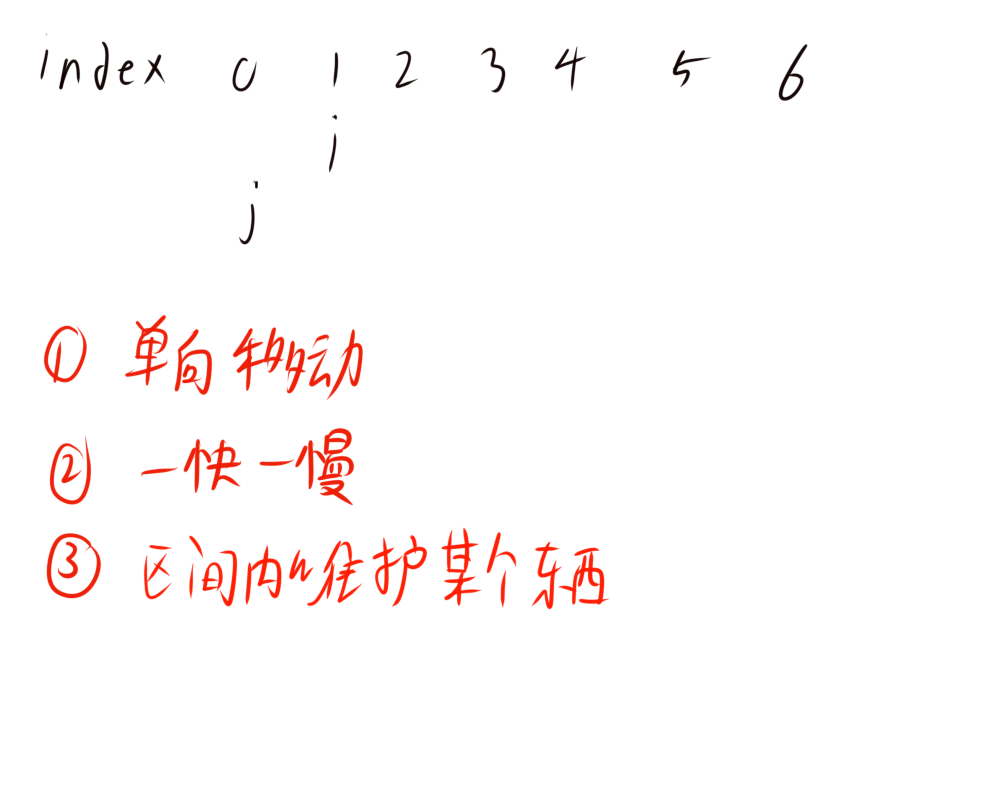 index 0 1 2 3 4 5 6
i
j
① 单向移动
② 一快一慢
③ 区间内维护某个东西